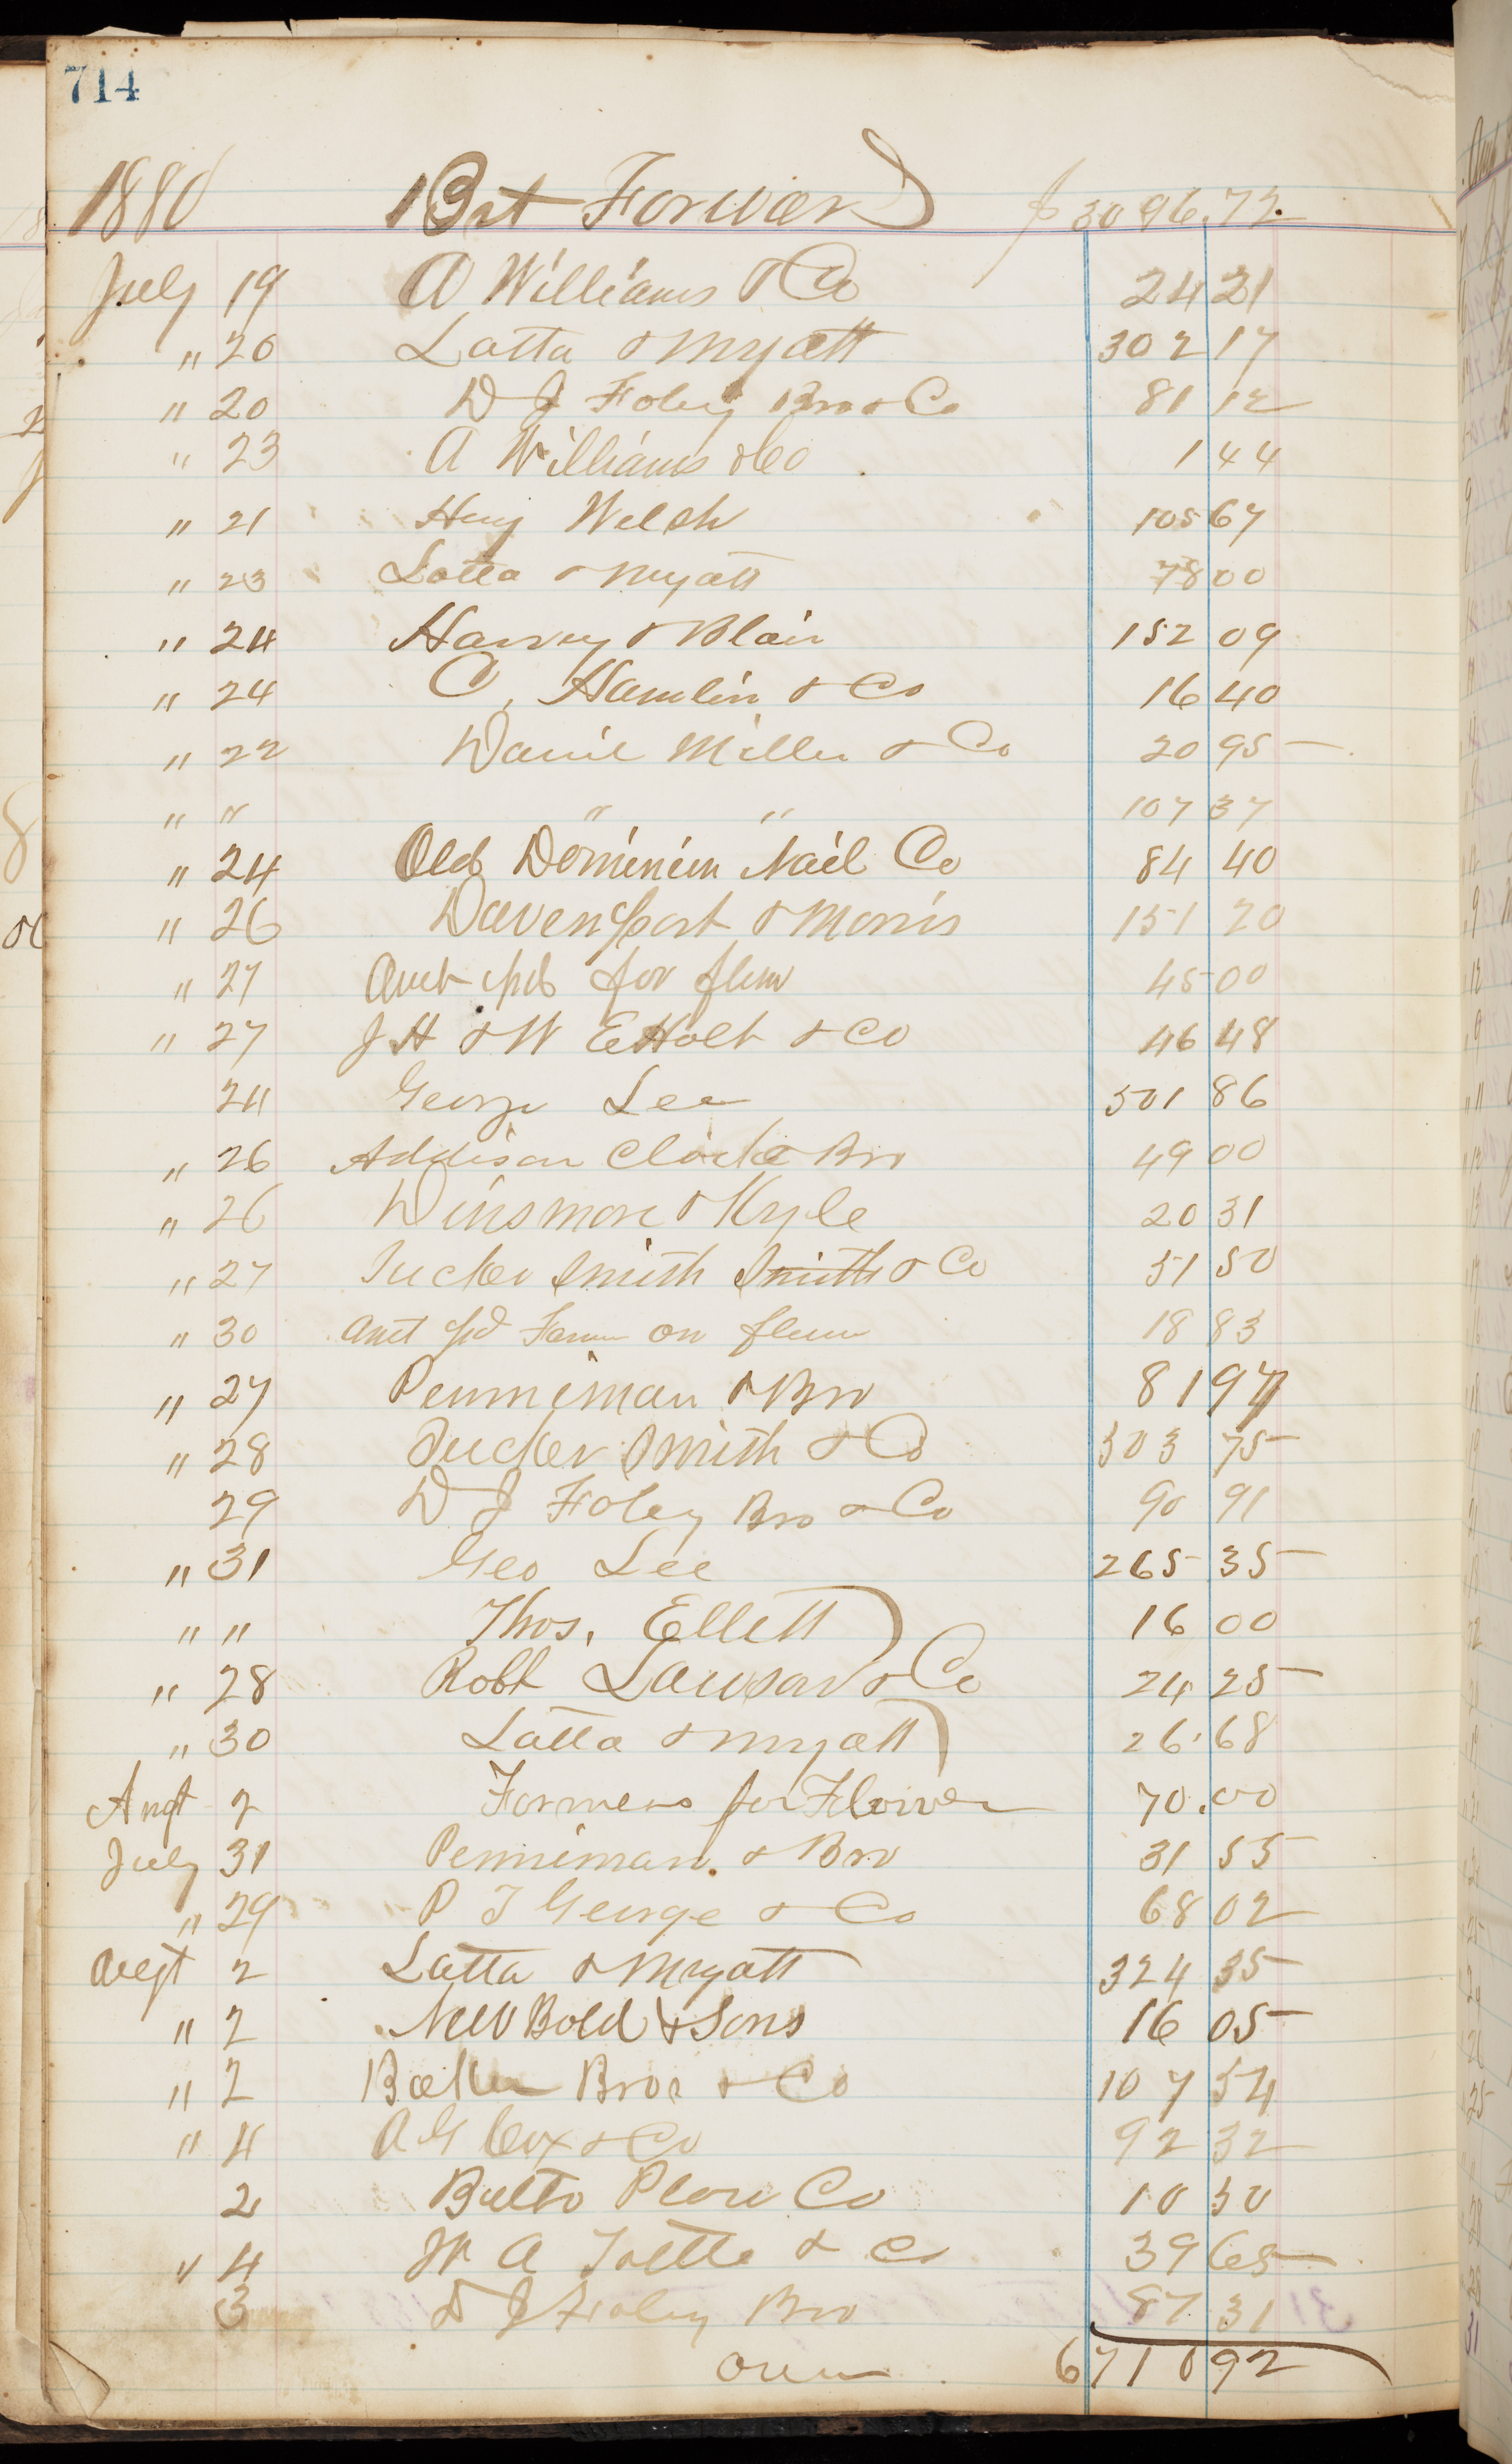 714
1880 Bst Forward $ 3096.72
July 19 A Williams & Co 24 21
" 20 Latta & Myatt 302 17
" 20 D J Foley Bro & Co 81 12
" 23 A Williams & Co 1 44
" 21 Heny Welsh 105 67
" 23 Latta & Myatt 78 00
" 24 Harvey & Blair 152 09
" 24 C, Hamlin & Co 16 40
" 22 Daniel Miller & Co 20 95
" " " " 107 37
" 24 Old Dominion Nail Co 84 40
" 26 Davenport & Morris 151 20
" 27 Amt pd for flour 45 00
" 27 J H & W E Holt & Co 46 48
24 George Lee 501 86
" 26 Addison Clarke & Bro 49 00
" 26 Dinsmore & Kyle 20 31
" 27 Tucker Smith Smith & Co 51 50
" 30 Amt pd on flour 18 83
" 27 Penniman & Bro 81 97
" 28 Tucker Smith & Co 303 75
29 D J Foley Bro & Co 90 91
" 31 Geo Lee 265 35
" " Thos, Ellett 16 00
" 28 Robt Lawson & Co 24 25
" 30 Latta & Myatt 26.68
Augt 2 Farmers for Flower 70.00
July 31 Penniman & Bro 31 55
" 29 P T George & Co 68 02
Augt 2 Latta & Myatt 324 35
" 2 New Bold & Sons 16 05
" 2 Bros & Co 107 54
" 4 A G Cox & Co 92 32
2 Balto Plow Co 10 50
" 4 W A & Co 39 65
3 D J Foley Bro 87 31
over 6710 92